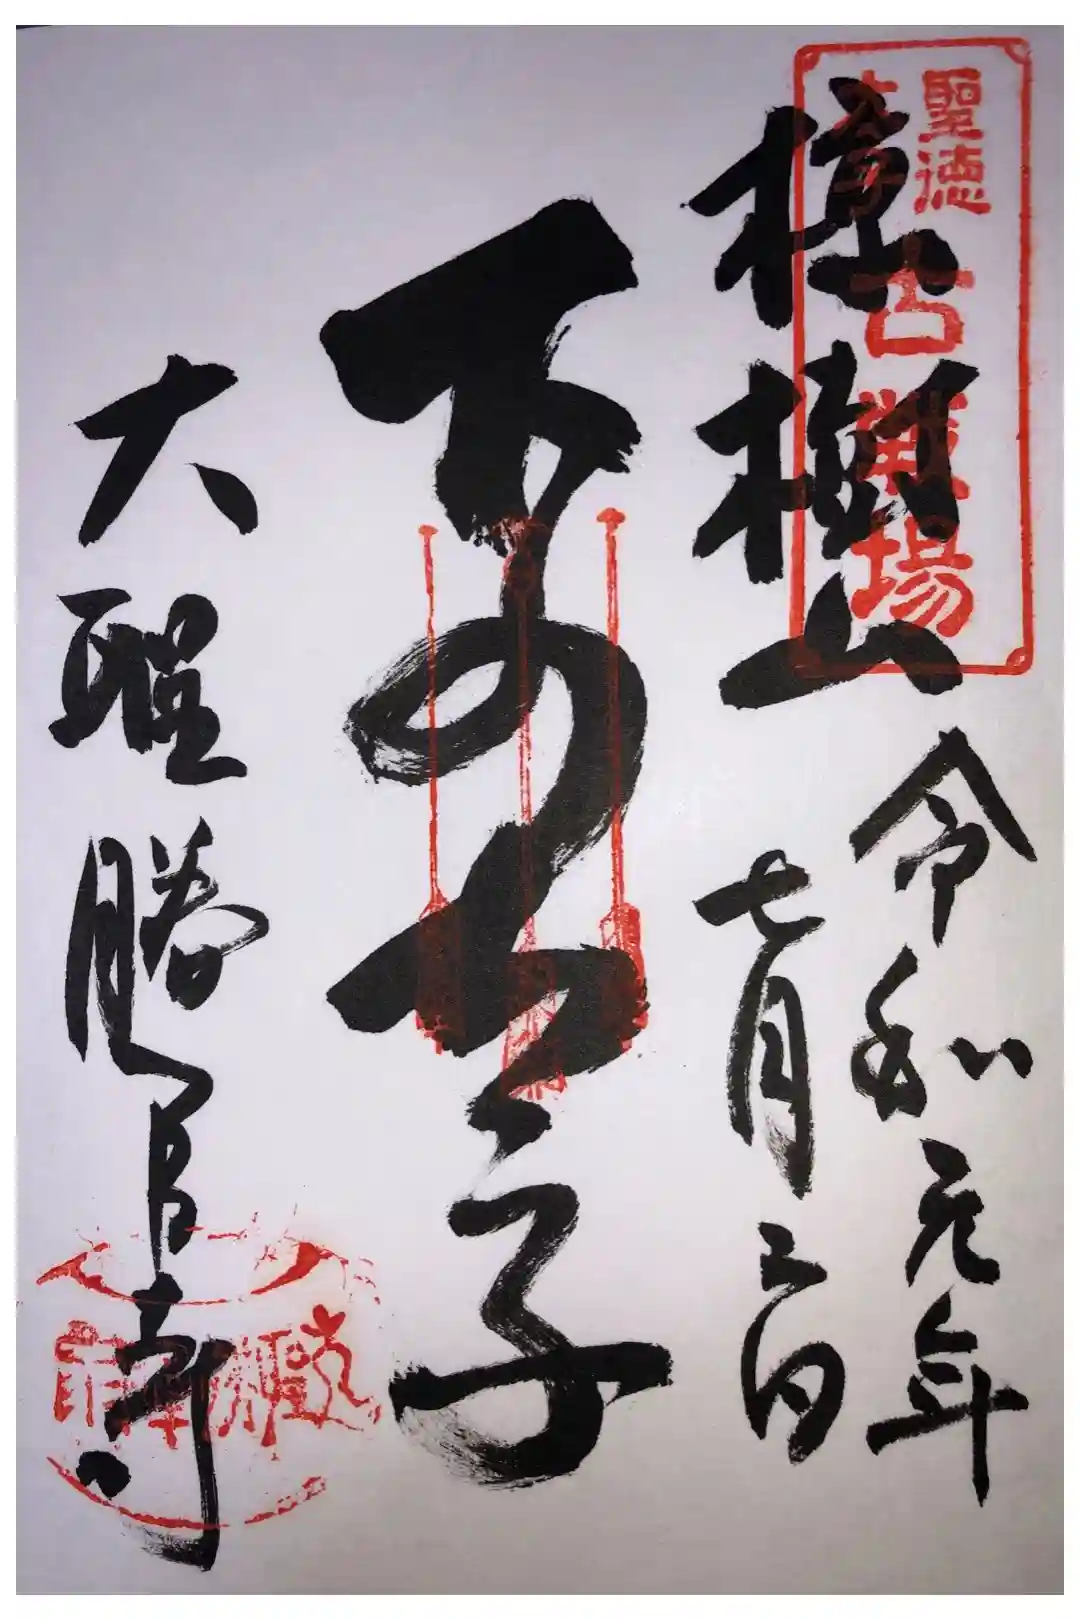 聖徳
太子
古戦場
椋樹山
令和元年
七月六日
下の太子
大聖勝軍寺